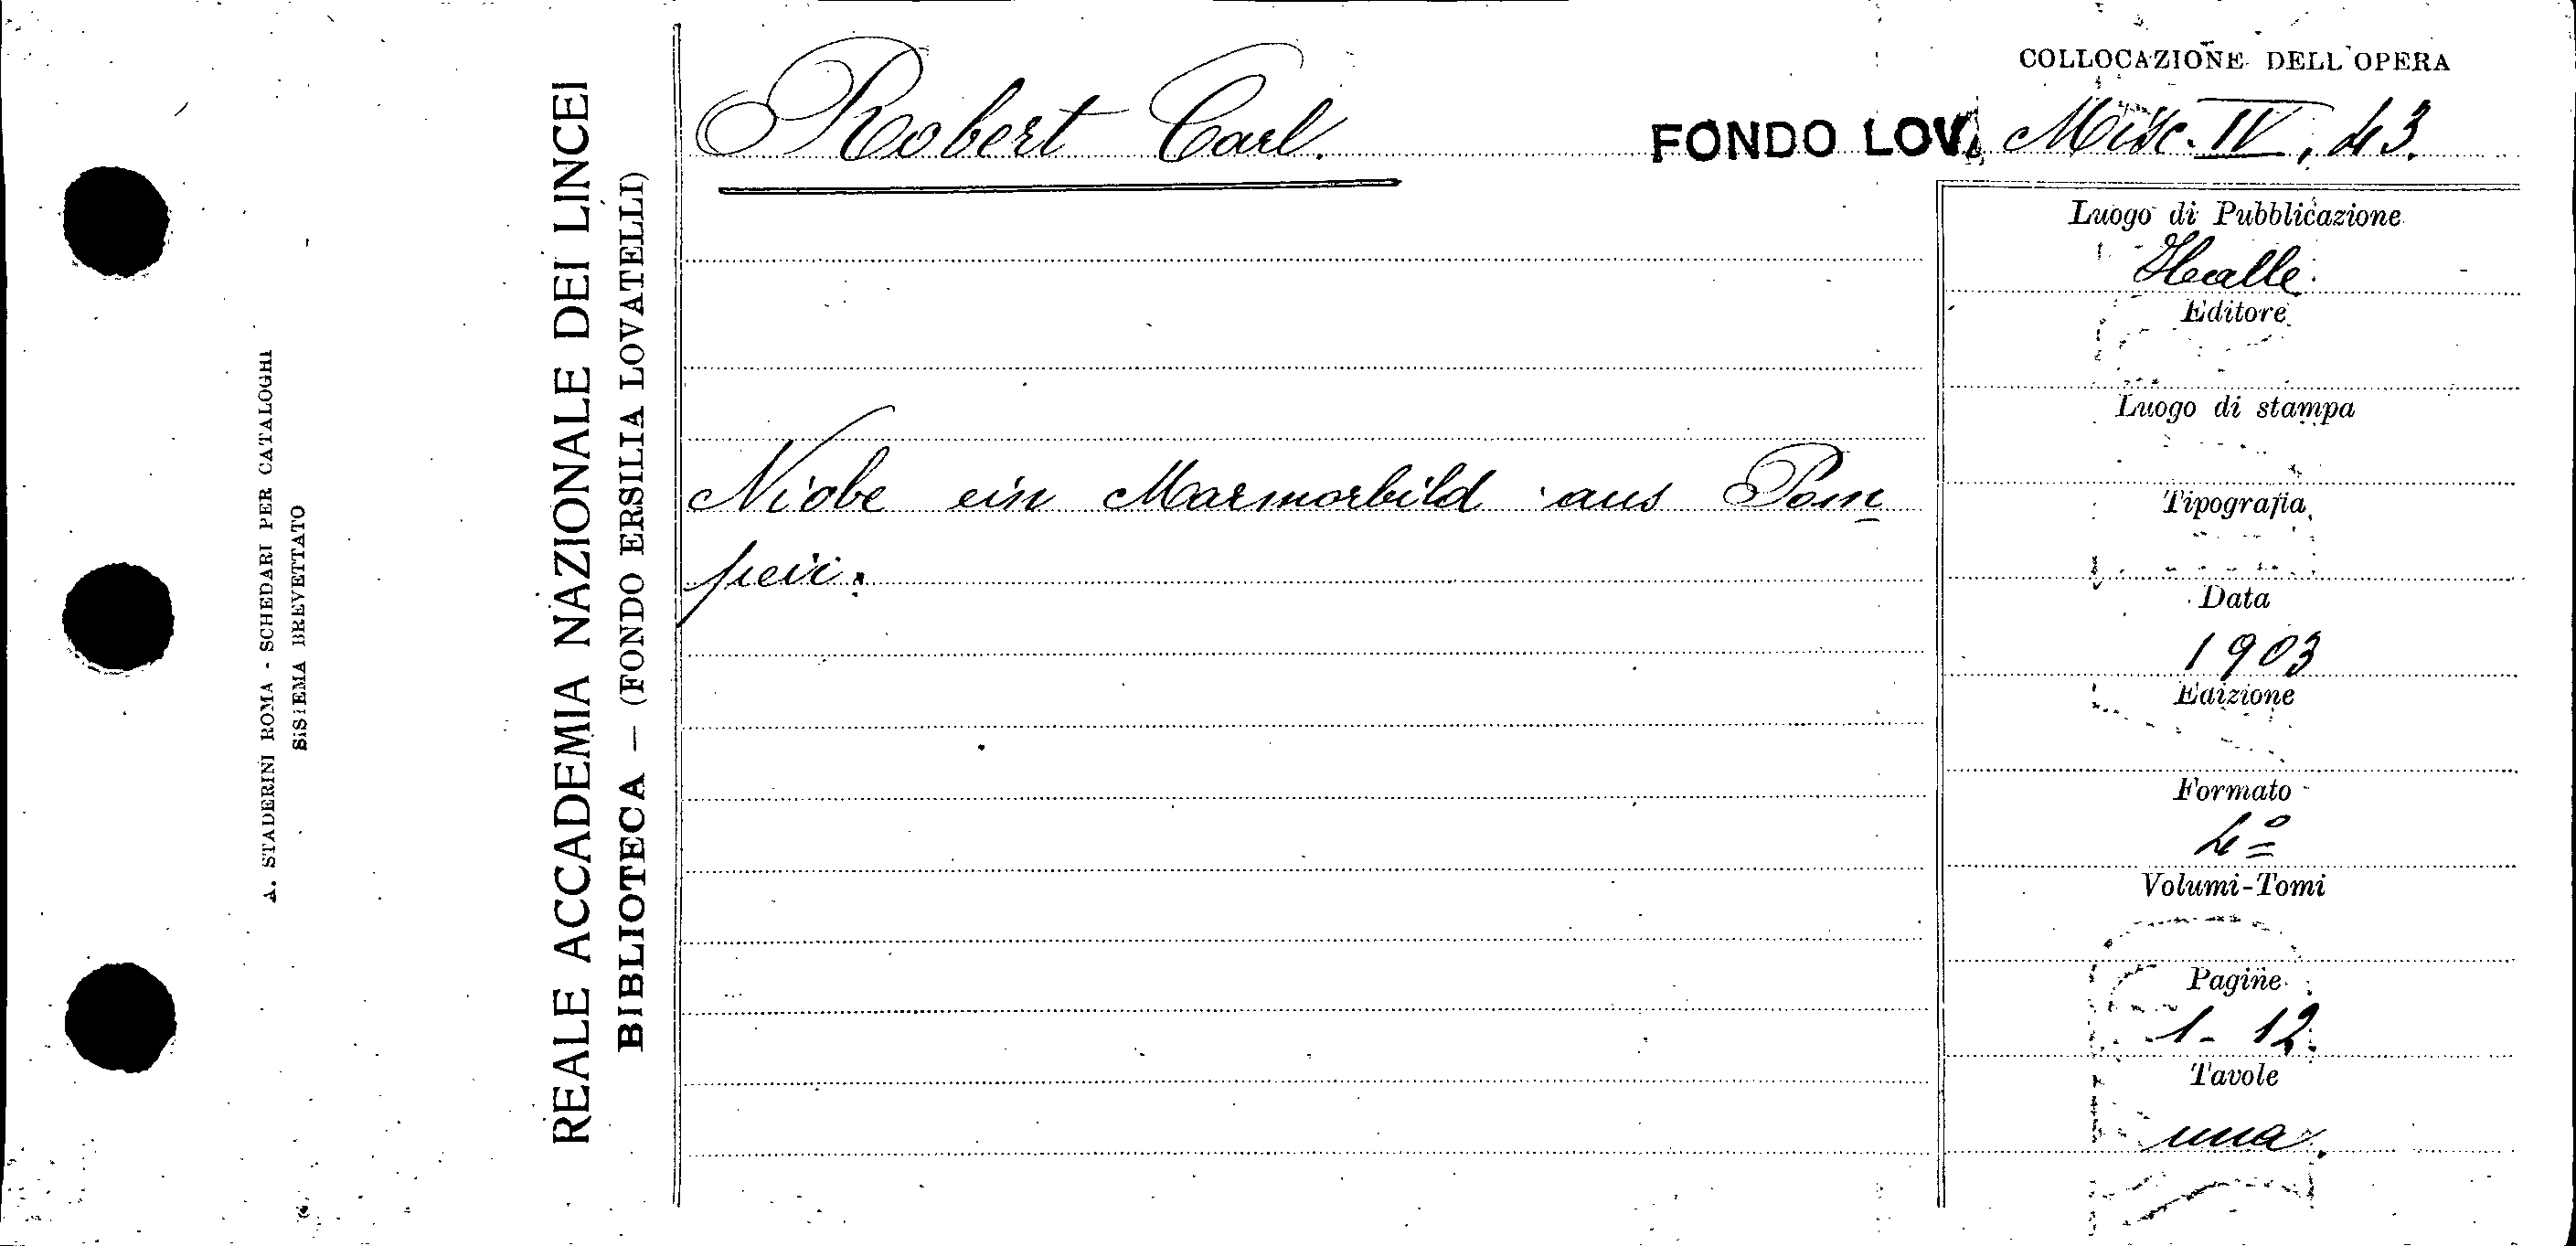 A. STADERINI ROMA - SCHEDARI PER CATALOGHI
SISTEMA BREVETTATO
REALE ACCADEMIA NAZIONALE DEI LINCEI
BIBLIOTECA — (FONDO ERSILIA LOVATELLI)
COLLOCAZIONE DELL'OPERA
Robert Carl.
FONDO LOV. Misc. IV, 43.
Niobe ein Marmorbild aus Pom
peii.
Luogo di Pubblicazione
Halle
Editore
Luogo di stampa
Tipografia
Data
1903
Edizione
Formato
4º
Volumi-Tomi
Pagine
1-12.
Tavole
una.